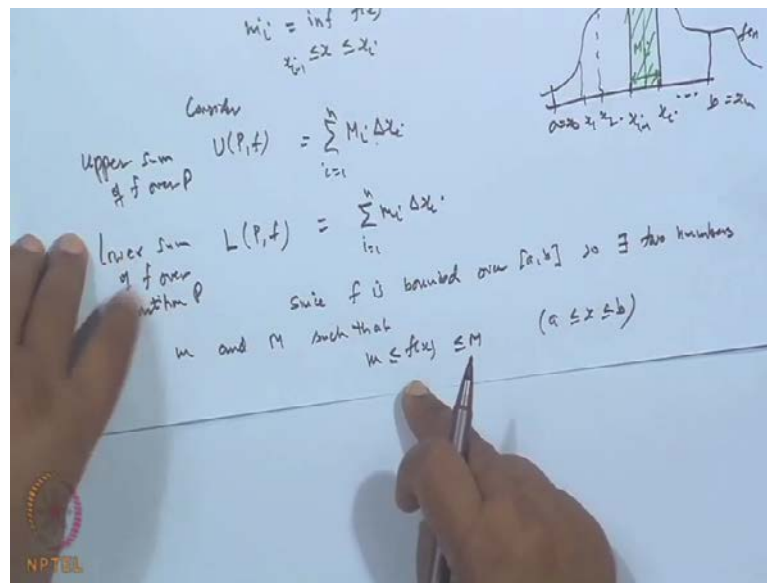 mi = inf f(x)
xi-1 ≤ x ≤ xi
f(x)
Mi
a=x0 x1 x2 . xi-1 xi ... b = xn
Consider
Upper Sum of f over P U(P,f) = n Σ i=1 Mi Δxi
Lower Sum of f over P L(P,f) = n Σ i=1 mi Δxi
Since f is bounded over [a,b] so ∃ two numbers
m and M such that
m ≤ f(x) ≤ M (a ≤ x ≤ b)
NPTEL